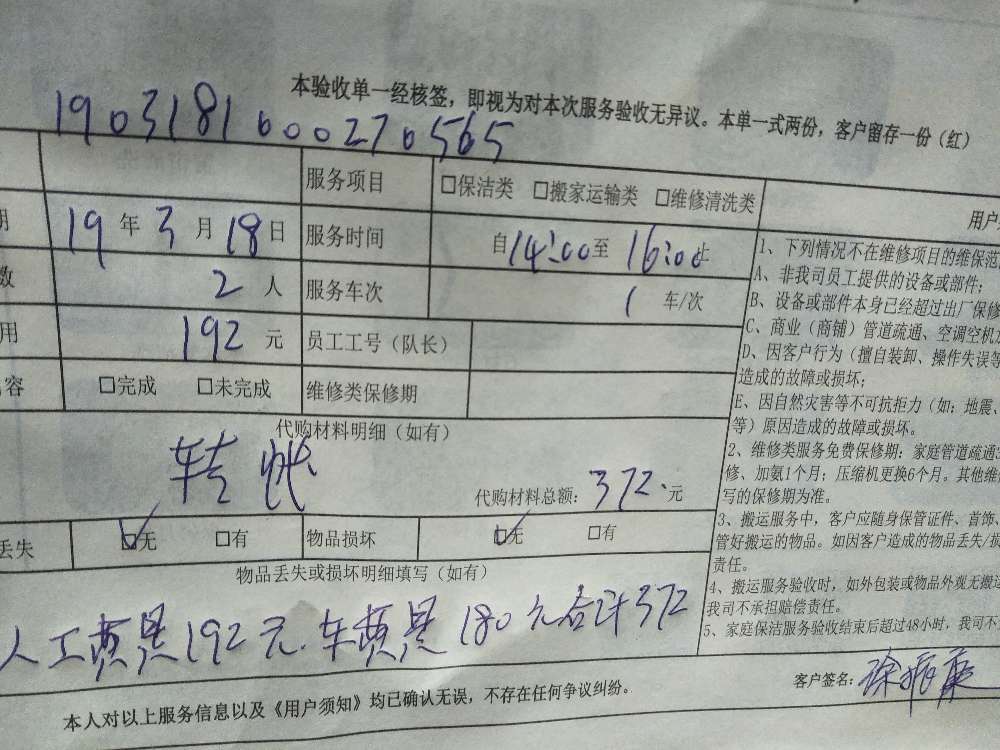 本验收单一经核签，即视为对本次服务验收无异议。本单一式两份，客户留存一份（红）
19031816000270565
服务项目 □保洁类 □搬家运输类 □维修清洗类
期 19年3月18日 服务时间 自14:00至16:00止
数 2人 服务车次 1车/次
用 192元 员工工号（队长）
内容 □完成 □未完成 维修类保修期
代购材料明细（如有）
转帐 代购材料总额：372.元
丢失 ☑无 □有 物品损坏 ☑无 □有
物品丢失或损坏明细填写（如有）
人工费是192元.车费是180元合计372
本人对以上服务信息以及《用户须知》均已确认无误，不存在任何争议纠纷。
客户签名：徐振
用户
1、下列情况不在维修项目的维保范
A、非我司员工提供的设备或部件；
B、设备或部件本身已经超过出厂保修
C、商业（商铺）管道疏通、空调空机
D、因客户行为（擅自装卸、操作失误等
造成的故障或损坏；
E、因自然灾害等不可抗拒力（如：地震、
等）原因造成的故障或损坏。
2、维修类服务免费保修期：家庭管道疏通
修、加氨1个月；压缩机更换6个月。其他维
写的保修期为准。
3、搬运服务中，客户应随身保管证件、首饰、
管好搬运的物品。如因客户造成的物品丢失/损
责任。
4、搬运服务验收时，如外包装或物品外观无搬运
我司不承担赔偿责任。
5、家庭保洁服务验收结束后超过48小时，我司不